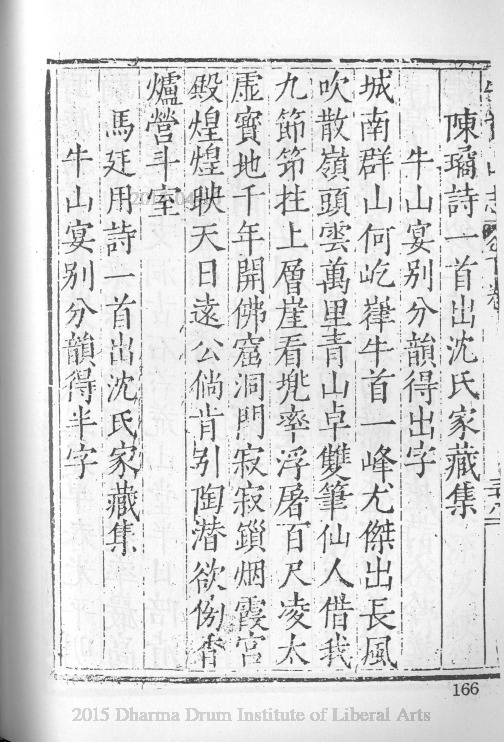 陳璚詩一首出沈氏家藏集
牛山宴別分韻得出字
城南群山何屹嵂牛首一峰尤傑出長風
吹散嶺頭雲萬里青山卓雙筆仙人借我
九節笻拄上層崖看兠率浮屠百尺凌太
虛寳地千年開佛窟洞門寂寂鎖烟霞宮
殿煌煌映天日遠公倘肯引陶潜欲傍香
爐營斗室
馬廷用詩一首出沈氏家藏集
牛山宴别分韻得半字
166
2015 Dharma Drum Institute of Liberal Arts